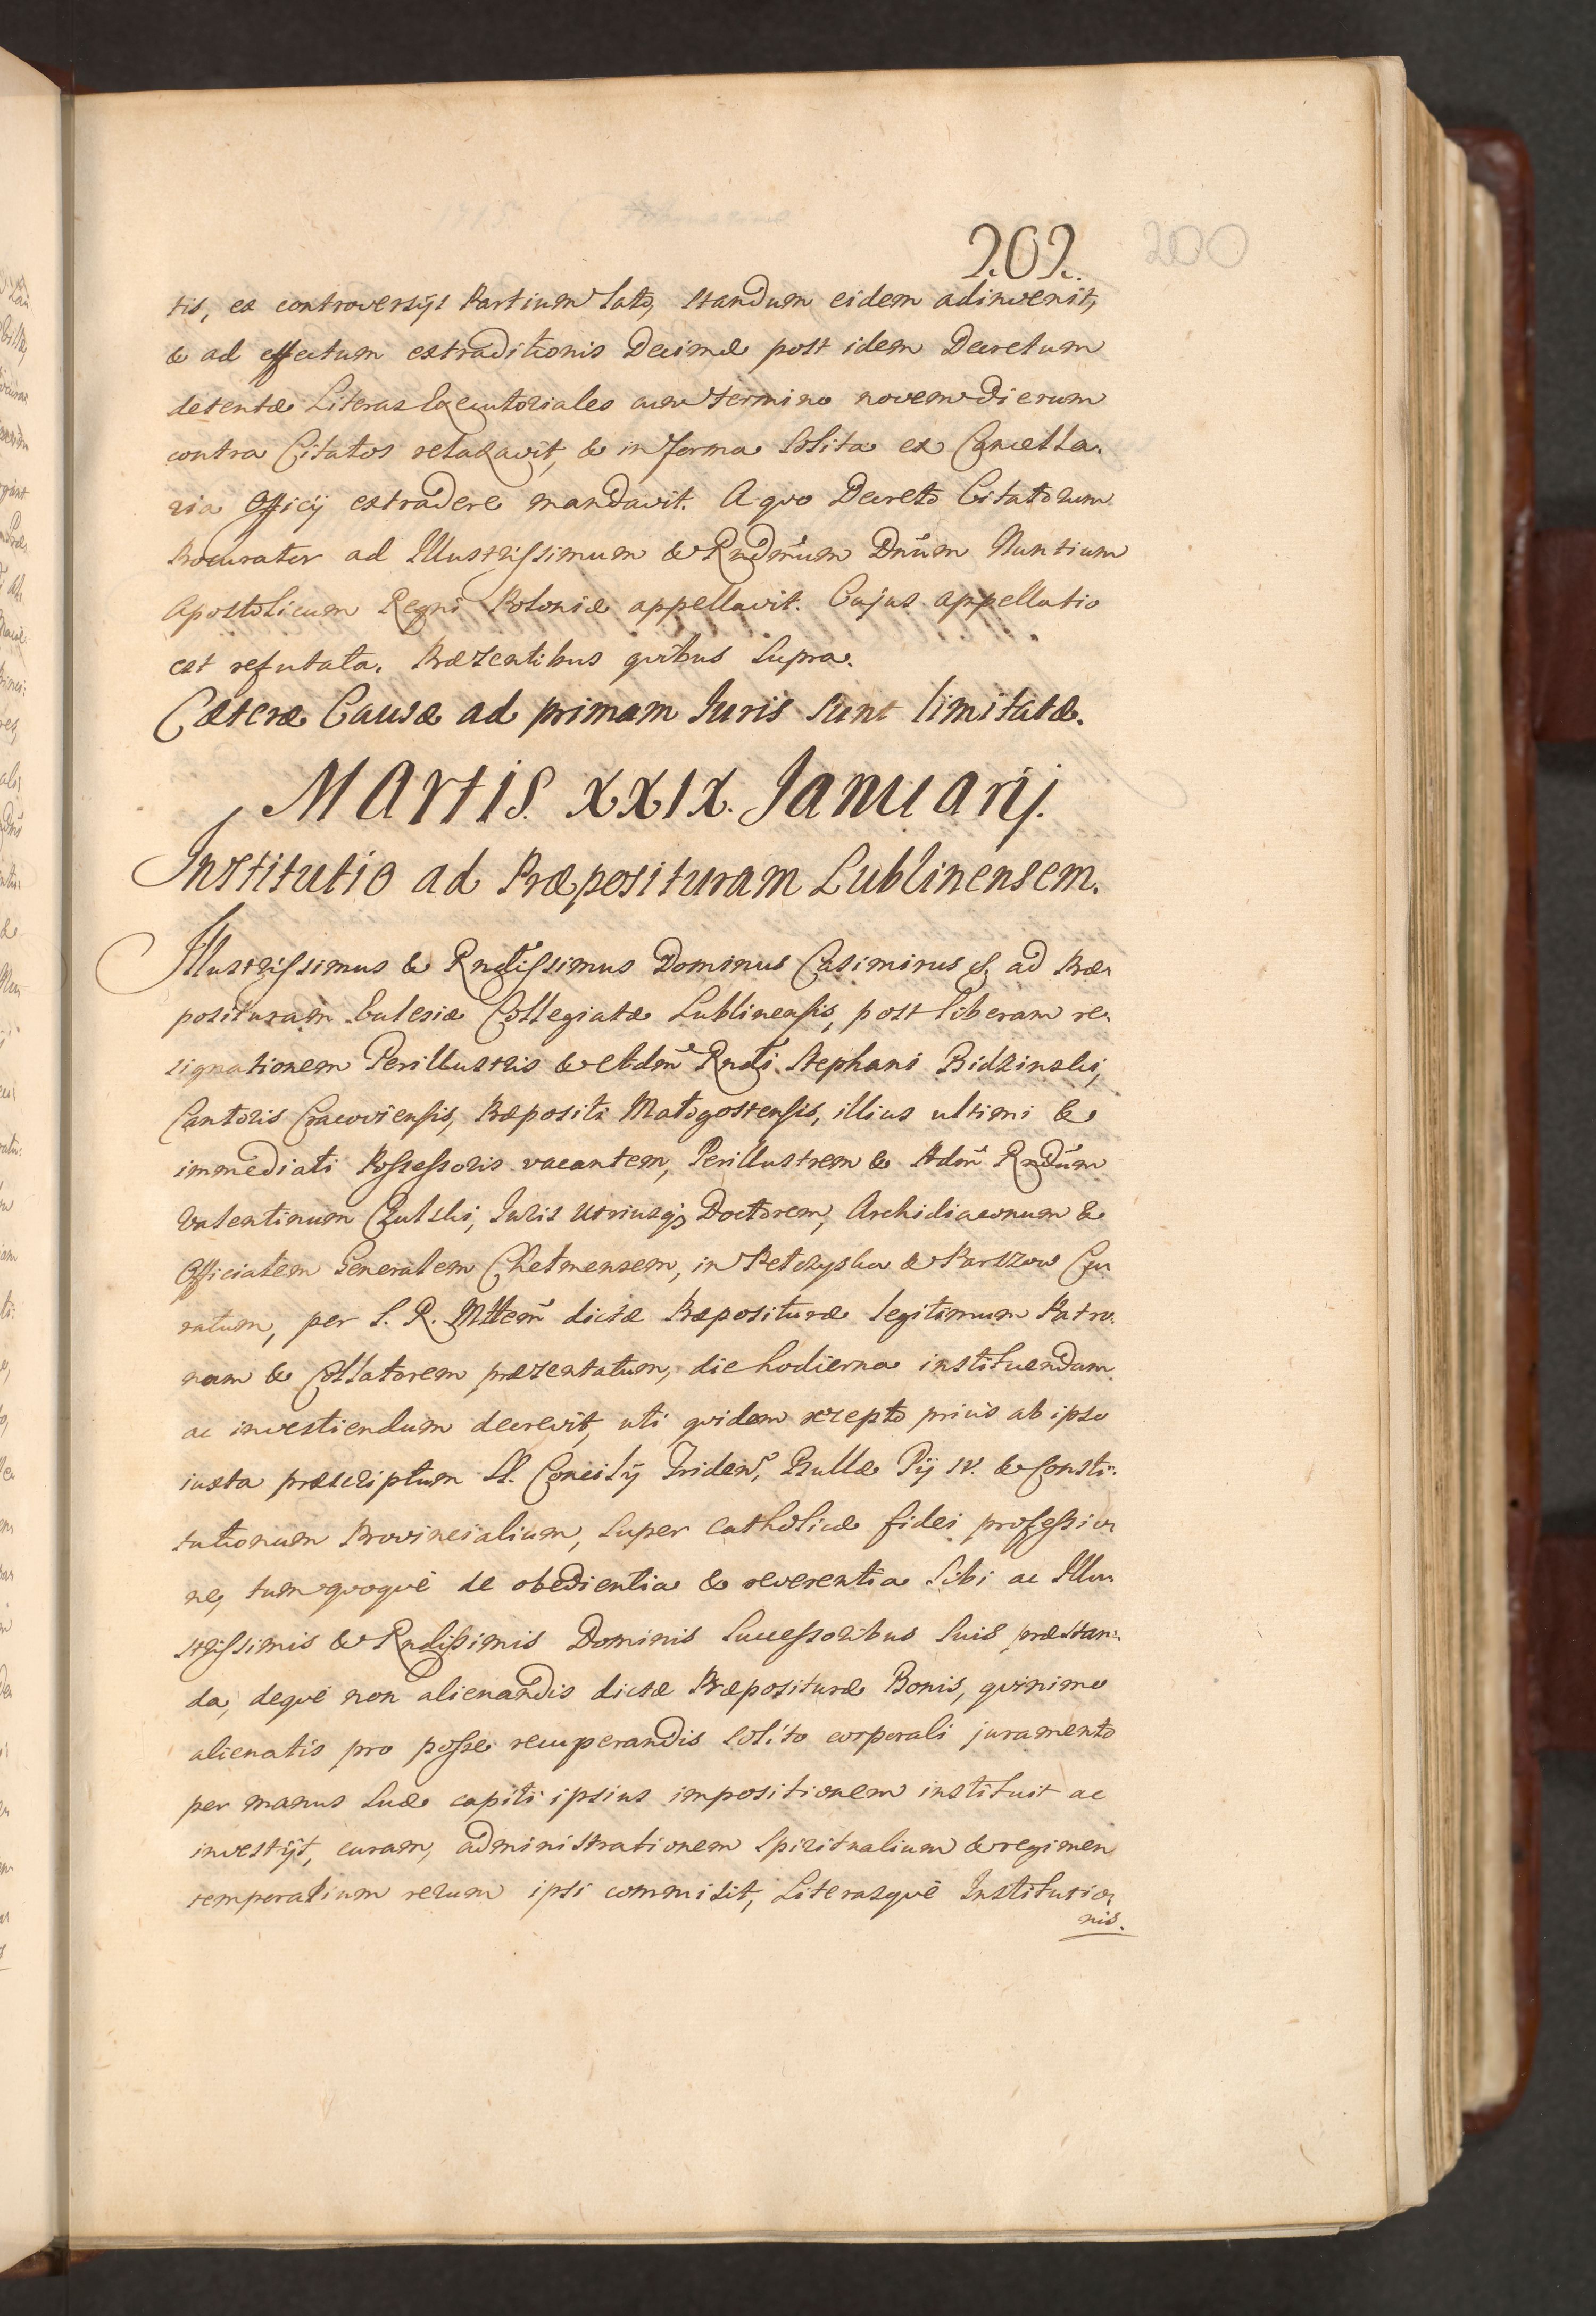 202. 200
tis, ex controversijs Partium lato, standum eidem adinvenit,
& ad effectum extraditionis Decimæ post idem Decretum
detentæ Literas Executoriales cum termino novem dierum
contra Citatos relaxavit, & in forma solita ex Cancella-
ria Officij extradere mandavit. A quo Decreto Citatorum
Procurator ad Illustrissimum & Rndmum Dnum Nuntium
Apostolicum Regni Poloniæ appellavit. Cujus appellatio
est refutata. Præsentibus quibus supra.
Cæteræ Causæ ad primam Iuris sunt limitatæ.
Martis. XXIX. Januarij.
Institutio ad Præposituram Lublinensem.
Illustrissimus & Rndissimus Dominus Casimirus &. ad Præ-
posituram Eclesiæ Collegiatæ Lublinensis, post liberam re-
signationem Perillustris & Adm Rndi Stephani Bidzinski,
Cantoris Cracoviensis, Præpositi Małogostensis, illius ultimi &
immediati Possessoris vacantem, Perillustrem & Adm Rndum
Valentinum Czulski, Iuris Utriusq3 Doctorem, Archidiaconum &
Officialem Generalem Chełmensem, in & Parszow Cu-
ratum, per S. R. Mttem dictæ Præpositure legitimum Patro-
num & Collatorem præzentatum, die hodierna instituendum
ac investiendum decrevit, uti quidem recepto prius ab ipso
iuxta præscriptum SS. Concilij Triden, Bullæ Pij IV. & Consti-
tutionum Provincialium, super catholicæ fidei professio-
ne, tum quoquè de obedientia & reverentia sibi ac Illu-
strissimis & Rndissimis Dominis Successoribus suis præstan-
da, dequè non alienandis dictæ Præpositure Bonis, quinimo
alienatis pro posse recuperandis solito corporali juramento
per manus suæ capiti ipsius impositionem instituit ac
investijt, curam, administrationem spiritualium & regimen
temporalium rerum ipsi commisit, Literasquè Institutio-
nis.